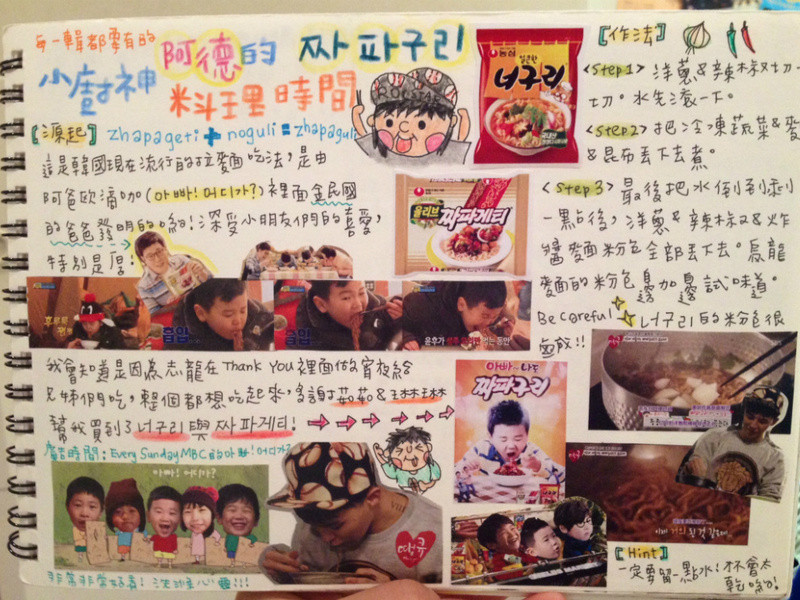 每一輯都要有的
阿德的 짜파구리
小廚神 料理時間
【源起】 zhapageti + noguli = zhapaguli
這是韓國現在流行的拉麵吃法,是由
阿爸歐滴咖(아빠!어디가?)裡面金民國
的爸爸發明的喲!深受小朋友們的喜愛,
特別是厚!
후루룩
흡입
흡입
윤후가 먹는 동안
我會知道是因為志龍在Thank You裡面做宵夜給
兄弟們吃,整個都想吃起來,多謝茹茹&琳琳
幫我買到了너구리與짜파게티!
廣告時間:Every Sunday MBC的아빠!어디가?
아빠! 어디가?
非常非常好看!
땡큐
농심
얼큰한
너구리
올리브
짜파게티
아빠와 나는
짜파구리
【作法】
<Step1> 洋蔥&辣椒切一
切。水先滾一下。
<Step2> 把冷凍蔬菜&麥
&昆布丟下去煮。
<Step3> 最後把水倒到剩
一點後,洋蔥&辣椒&炸
醬麵粉包全部丟下去。烏龍
麵的粉包邊加邊試味道。
Be careful 너구리的粉包很
鹹!!
이제 거의 된 것 같은데
【Hint】
一定要留一點水!才不會太
乾喲!